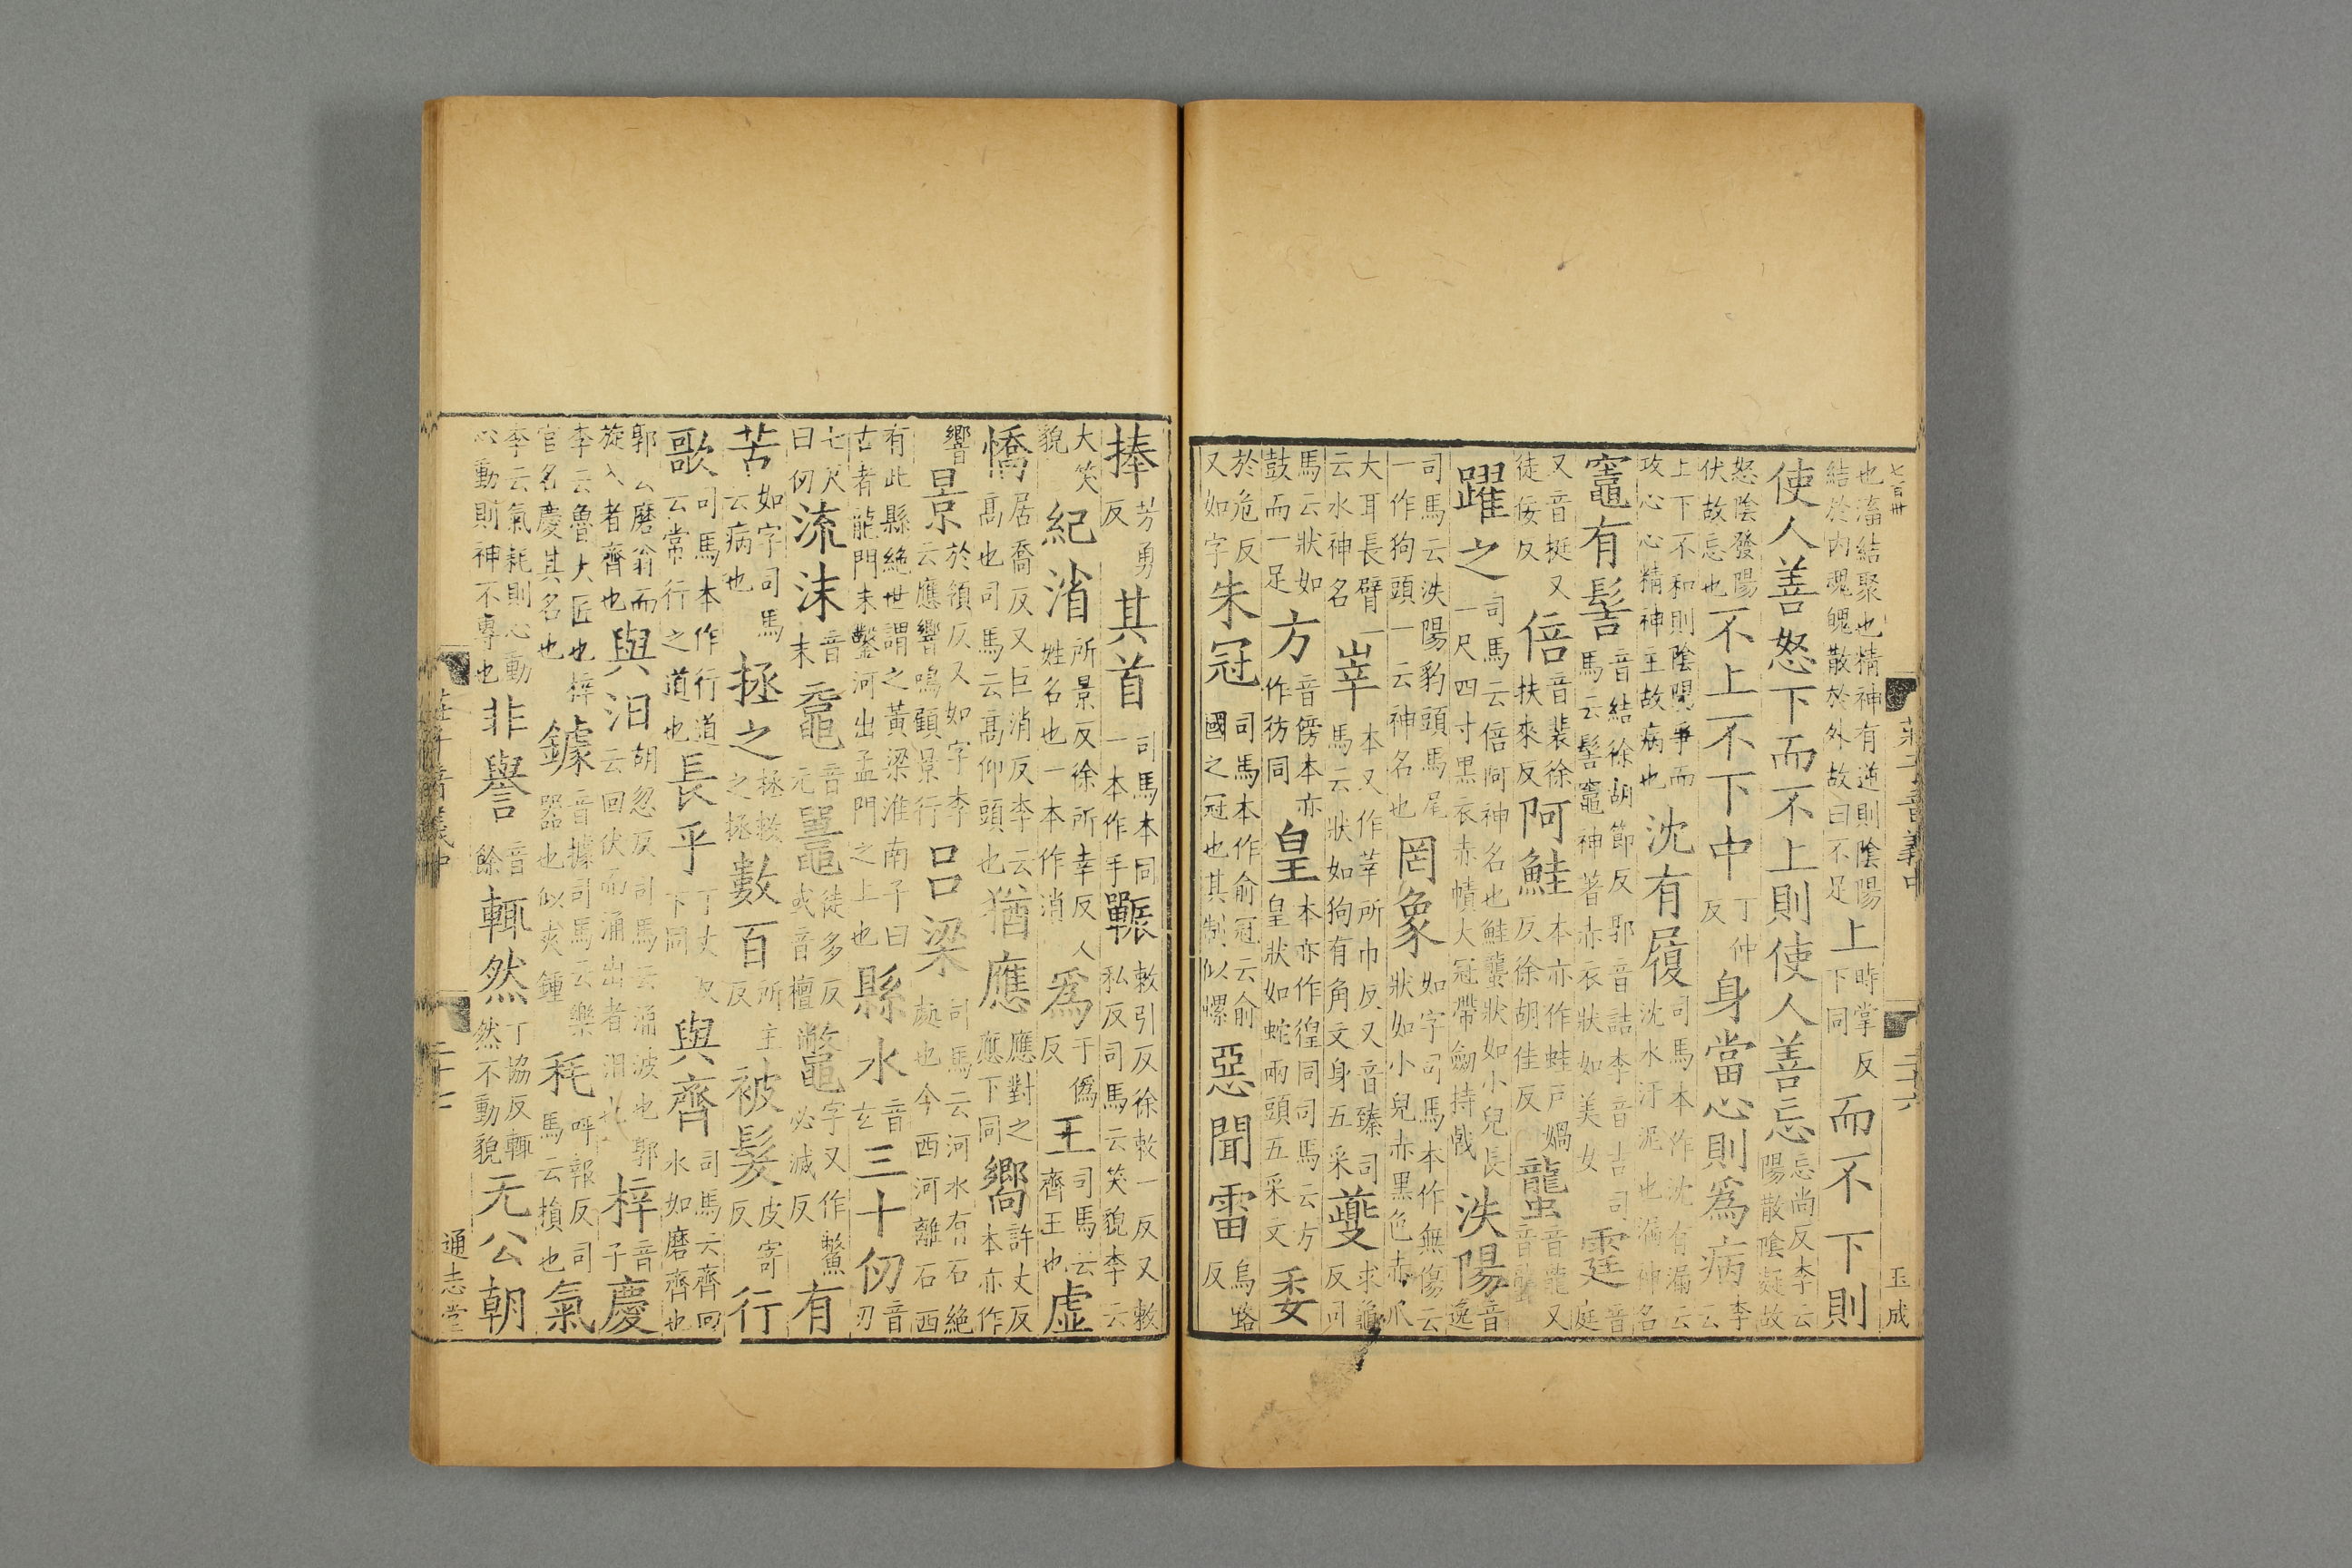 七百卅
莊子音義中
二十六
玉成
也滀結聚也精神有逆則陰陽結於內魂魄散於外故曰不足上時掌反下同而不下則
使人善怒下而不上則使人善忘忘尚反李云陽散陰凝故
怒陰發陽伏故忘也不上不下中丁仲反身當心則為病李云
上下不和則陰陽爭而攻心心精神主故病也沈有履司馬本作沈有漏云沈水汙泥也漏神名
竈有髻音結徐胡節反郭音詰李音吉司馬云髻竈神著赤衣狀如美女霆音庭
又音挺又徒佞反倍音裴徐扶來反阿鮭本亦作蛙戶媧反徐胡佳反蠪音龍又音聾
躍之司馬云倍阿神名也鮭蠪狀如小兒長一尺四寸黑衣赤幘大冠帶劒持戟泆陽音逸
司馬云泆陽豹頭馬尾一作狗頭一云神名也罔象如字司馬本作無傷云狀如小兒赤黑色赤爪
大耳長臂一云水神名峷本又作莘所巾反又音臻司馬云狀如狗有角文身五采夔求龜反司
馬云狀如鼓而一足方音傍本亦作彷同皇本亦作徨同司馬云方皇狀如蛇兩頭五采文委
於危反又如字朱冠司馬本作俞冠云俞國之冠也其制似螺惡聞雷烏路反
捧芳勇反其首司馬本同一本作手辴敕引反徐敕一反又敕私反司馬云笑貌李云
大笑貌紀渻所景反徐所幸反人姓名也一本作消為于僞反王司馬云齊王也虛
憍居喬反又巨消反李云高也司馬云高仰頭也猶應應對之應下同嚮許丈反本亦作
響景於領反又如字李云應響鳴顧景行呂梁司馬云河水有石絕處也今西河離石西
有此縣絕世謂之黃梁淮南子曰古者龍門未鑿河出孟門之上也縣水音玄三十仞音刃
七尺曰仞流沫音末黿音元鼉徒多反或音檀鼈字又作鱉必滅反有
苦如字司馬云病也拯之拯救之拯數百所主反被髮皮寄反行
歌司馬本作行道云常行之道也長乎丁丈反下同與齊司馬云齊回水如磨齊也
郭云磨翁而旋入者齊也與汩胡忽反司馬云涌波也郭云回伏而涌出者汩也梓音子慶
李云魯大匠也梓官名慶其名也鐻音據司馬云樂器也似夾鍾秏呼報反司馬云損也氣
李云氣耗則心動心動則神不專也非譽音餘輒然丁協反輒然不動貌无公朝
莊子音義中
二十七
通志堂